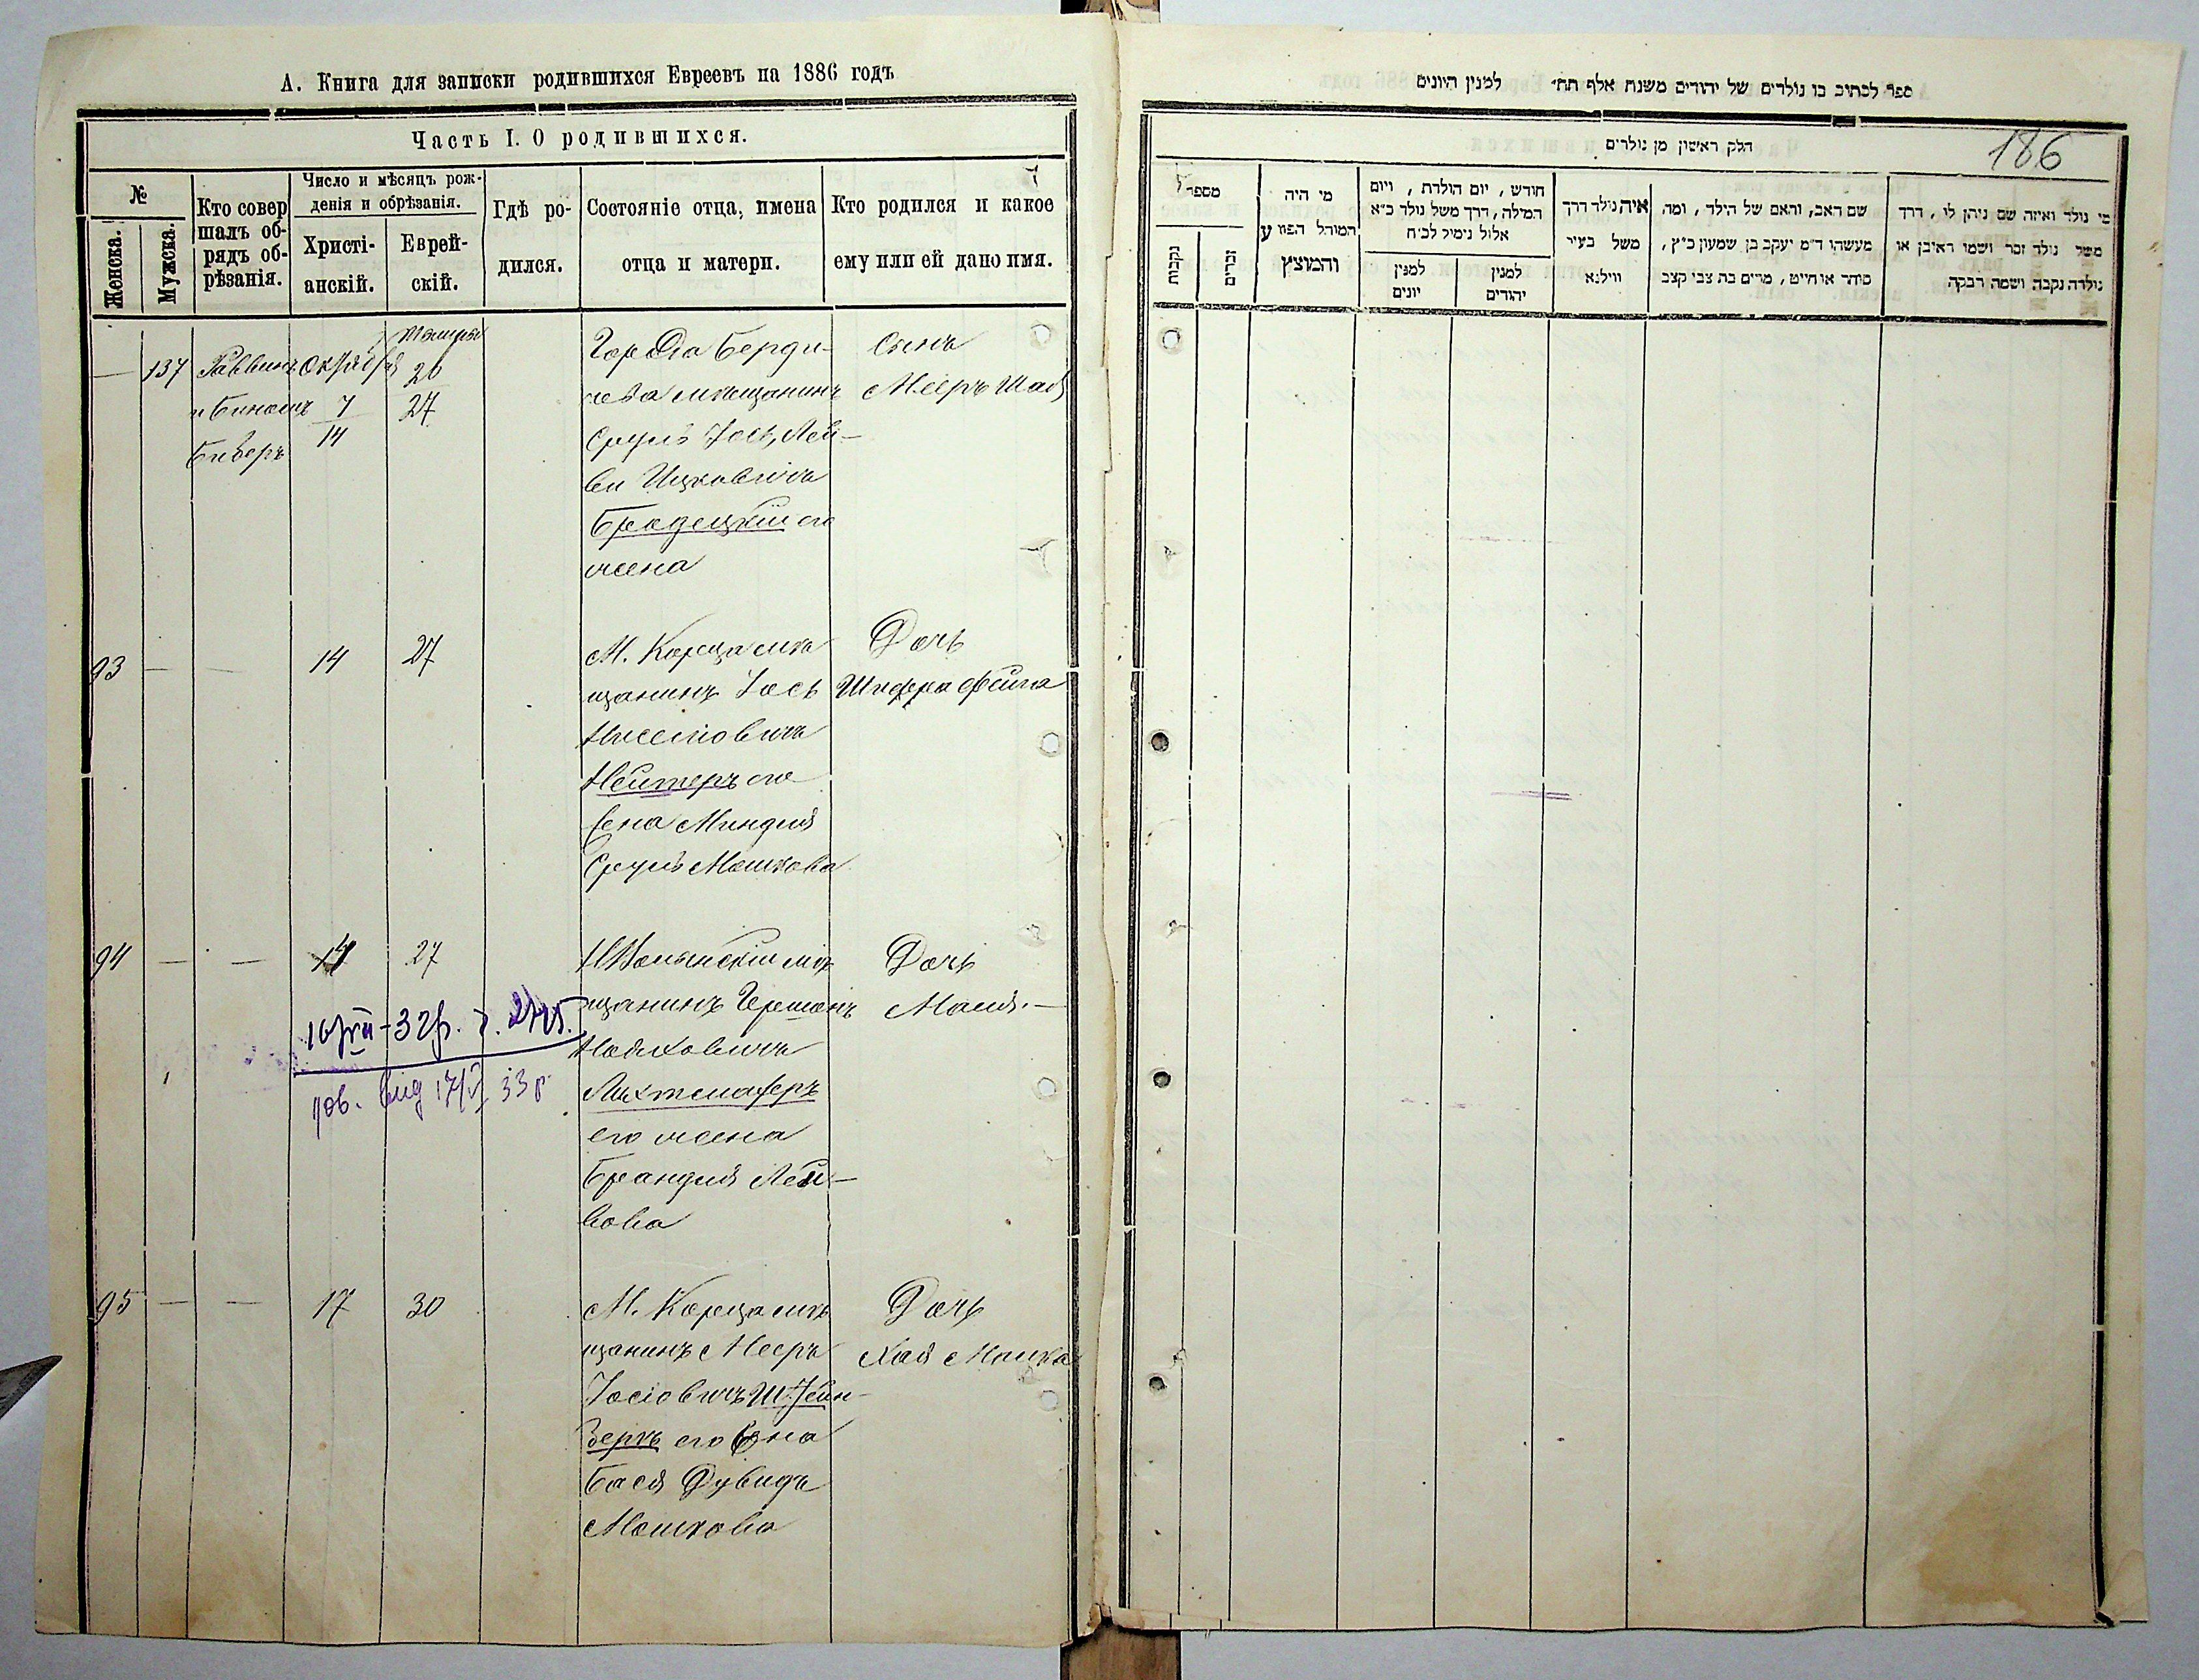 А. Книга для записки родившихся Евреевъ на 1886 годъ
Часть I. О родившихся.
№
Женска.
Мужска.
Кто совер
шалъ об-
рядъ об-
рѣзанія.
Число и мѣсяцъ рож-
денія и обрѣзанія.
Христі-
анскій.
Еврей-
скій.
Гдѣ ро-
дился.
Состояніе отца, имена
отца и матери.
Кто родился и какое
ему или ей дано имя.
— 137 Раввинъ Октября 20
7 27
14
Города Берди-
чева мѣщанинъ
Сруль Іось Лей-
Ицковичъ
Бродецкій его
жена
Сынъ
Мееръ Шая
93 — — 14 27
М. Корца мѣ
щанинъ Іось
Нисеновичъ
Нейтеръ его
жена Миндля
Сруль Мошкова
Дочь
Шифра Фейга
94 — — 14 27
мѣ
щанинъ Гершонъ
его жена
Брандля Лей-
бова
Дочь
Малія.—
95 — — 17 30
М. Корца мѣ
щанинъ Мееръ
Іосіовичъ Штейн-
бергъ его жена
Бася Дувидъ
Мошкова
Дочь
Хая
ספר לכתוב בו נולדים של יהודים משנת אלף תת׳ למנין היונים
חלק ראשון מן נולדים
186
מספר
נקבות
זכרים
מי היה
המוהל הפורע
והמוצץ
חודש, יום הולדת, ויום
המילה, דרך משל נולד כ״א
אלול נימול לכ״ח
למנין
יונים
למנין
יהודים
איה נולד דרך
משל בעיר
ווילנא
שם האב, והאם של הילד, ומה
מעשהו ד״מ יעקב בן שמעון כ״ץ,
סוחר או חייט, מרים בת צבי קצב
מי נולד ואיזה שם ניתן לו, דרך
משל נולד זכר ושמו ראובן או
נולדה נקבה ושמה רבקה